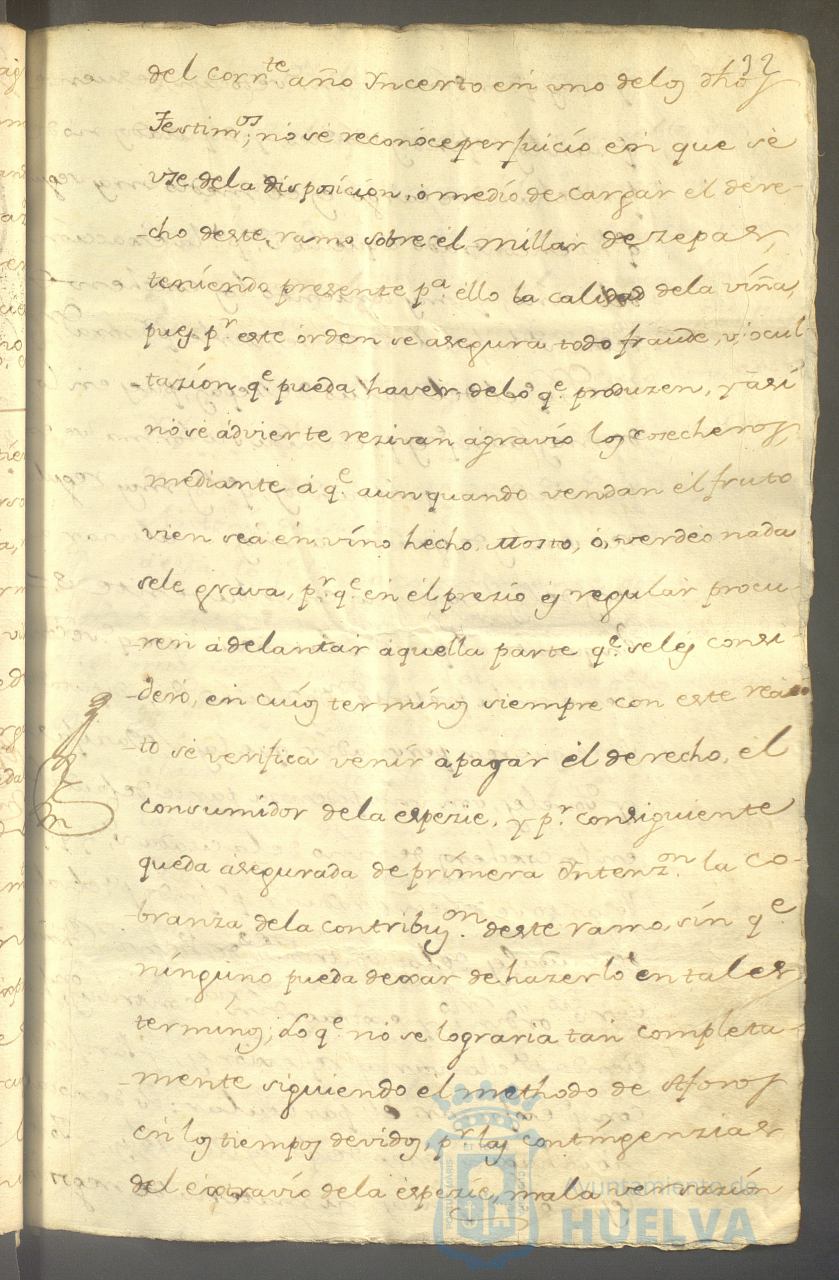 32
del corr.te año Yncerto en vno delos dhos
Testim.os; no se reconoce perjuicio en que se
vze dela disposicion, ó medio de cargar el dere-
-cho deste, ramo sobre el millar de zepas,
teniendo presente p.a ello la calidad dela viña,
pues p.r este orden se asegura todo fraude, v ocul
-tazion q.e pueda haver delo q.e produzen, y asi
no se advierte rezivan agravio los cosecheros,
mediante á q.e aunquando vendan el fruto
vien sea en vino hecho, Mosto, ó verdeo nada
sele grava, p.r q.e en el prezio es regular procu-
-ren adelantar aquella parte q.e seles consi-
-deró, en cuios terminos siempre con este
-to se verifica venir a pagar el derecho, el
consumidor dela espezie, y p.r consiguiente
queda asegurada de primera Yntenz.on la co-
-branza dela contribuz.on deste ramo, sin q.e
ninguno pueda dexar de hazerlo en tales
terminos; Lo q.e no se lograria tan completa-
-mente siguiendo el methodo de Aforos
en los tiempos devidos, p.r las contingenzias
del extravio dela espezie, mala ve razion
Ayuntamiento de
HUELVA